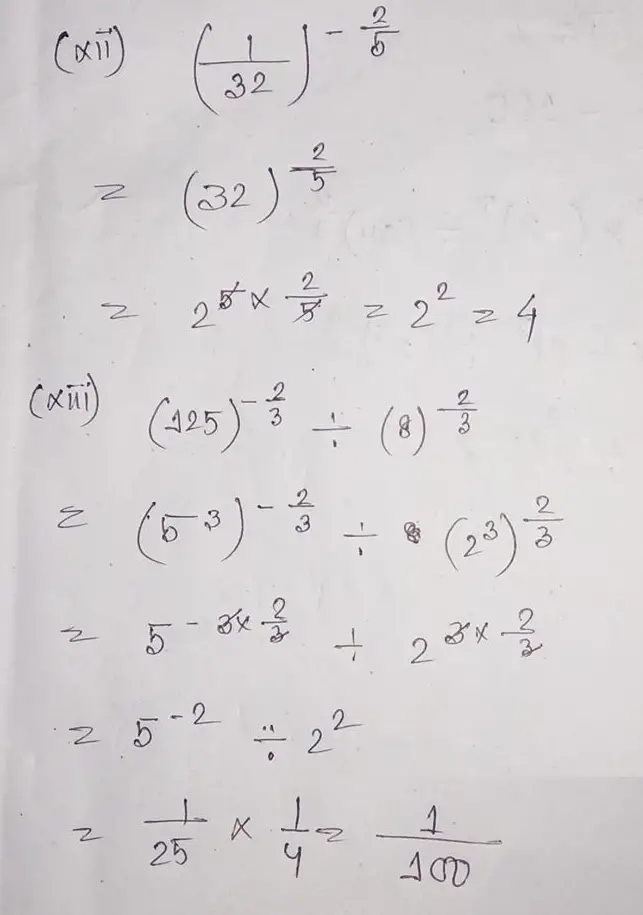 (xii) (1/32)^(-2/5)
= (32)^(2/5)
= 2^(5 × 2/5) = 2^2 = 4
(xiii) (125)^(-2/3) ÷ (8)^(2/3)
= (5^3)^(-2/3) ÷ (2^3)^(2/3)
= 5^(-3 × 2/3) ÷ 2^(3 × 2/3)
= 5^(-2) ÷ 2^2
= 1/25 × 1/4 = 1/100